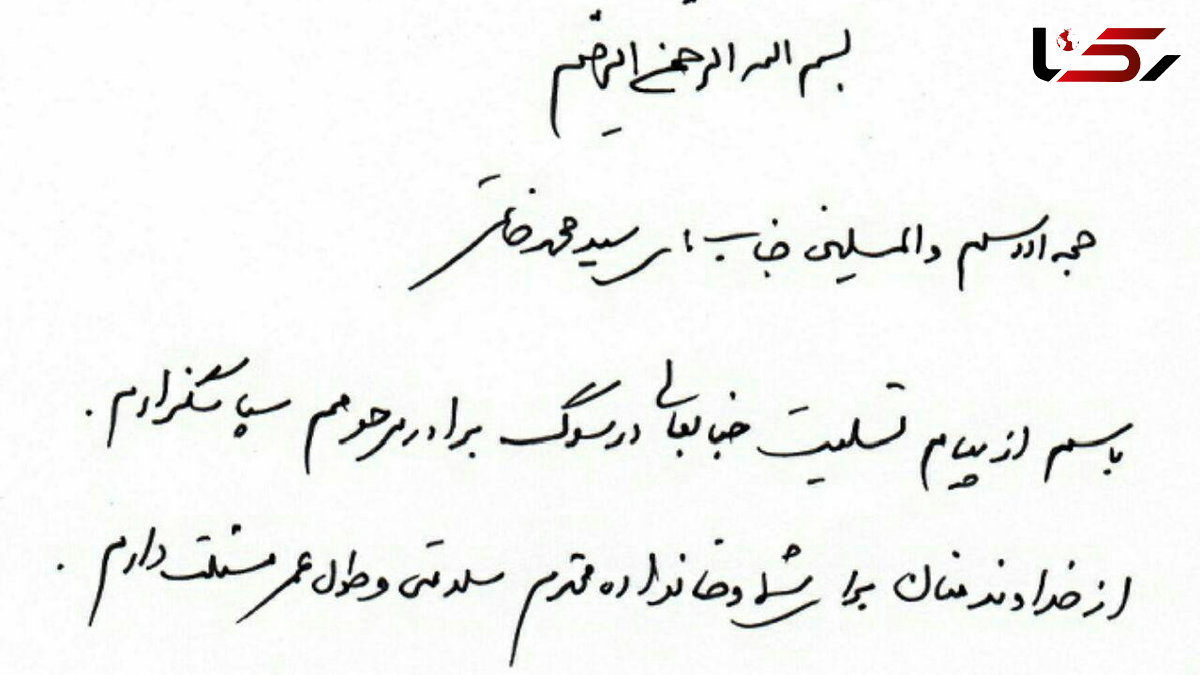 رکنا
بسم الله الرحمن الرحیم
حجه الاسلام والمسلمین جناب آقای سید محمد خاتمی
با سلام از پیام تسلیت جنابعالی در سوگ برادر مرحومم سپاسگزارم .
از خداوند منان برای شما و خانواده محترم سلامتی و طول عمر مسئلت دارم .